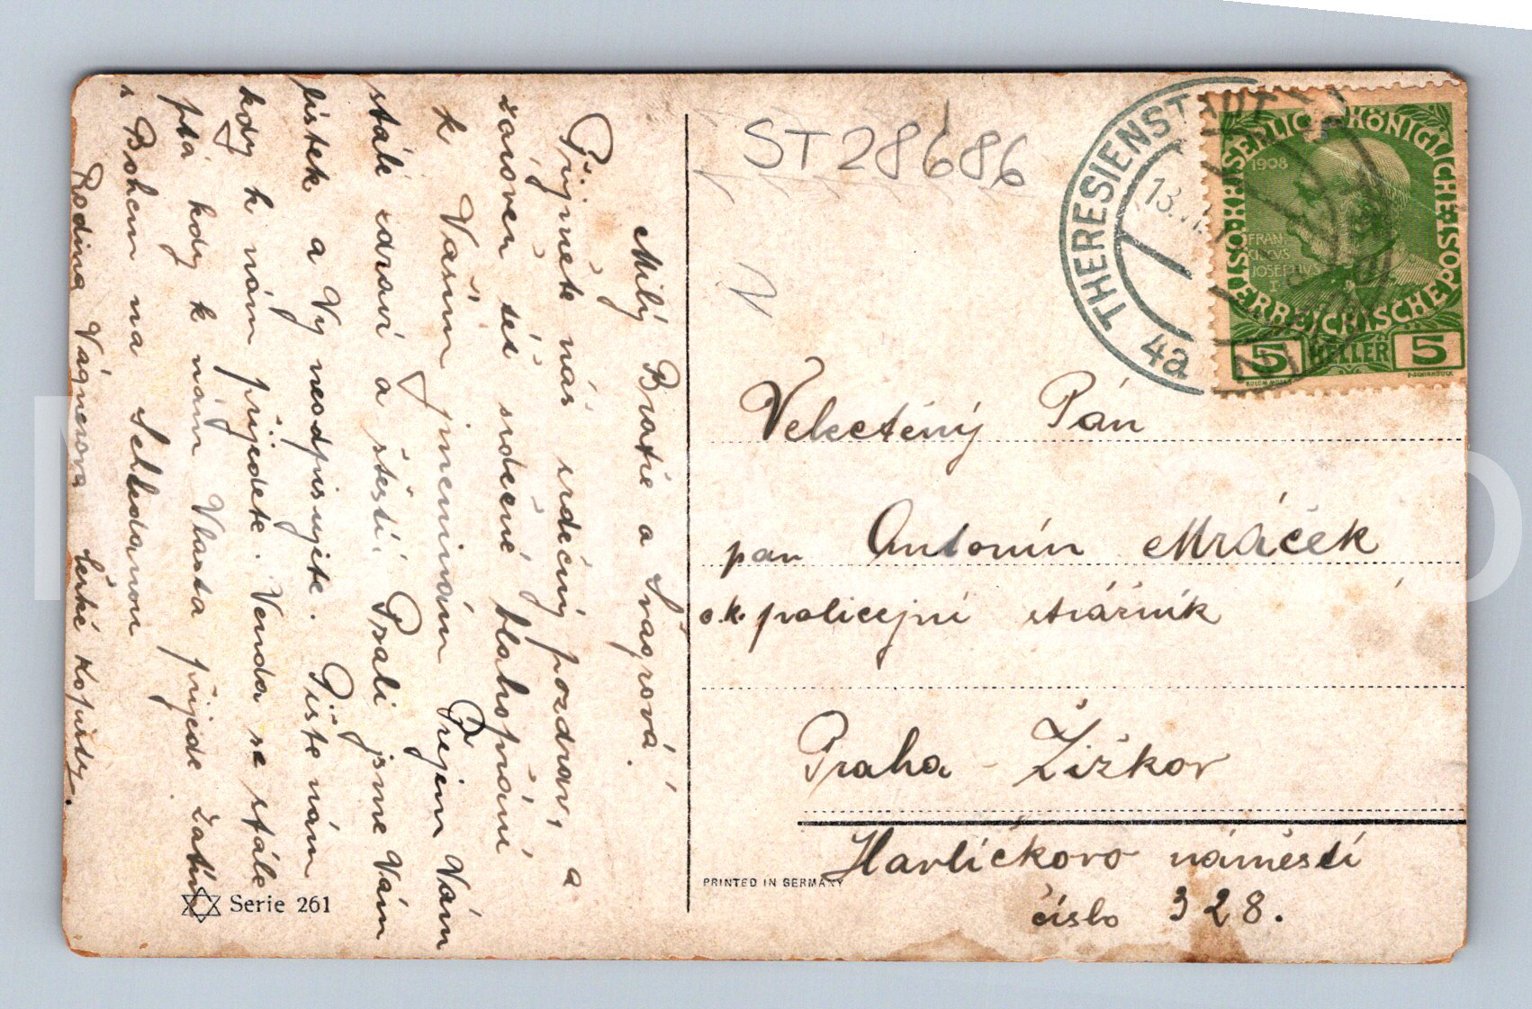 Milý Bratře a Švagrová.
Přijměte nás srdečný pozdrav, a
zároveň též srdečné blahopřání
k Vašim jmeninám Přejem Vám
stálé zdraví a štestí. Psali jsme Vám
lístek a Vy neodpisujete. Pište nám
kdy k nám přijedete. Venda se stále
ptá kdy k nám Vlasta přijede zatím
s Bohem na Shledanou
Rodina Vágnerova České Kopisty.
Serie 261
ST28686
THERESIENSTADT
4a
KAISERLICH KÖNIGLICHE ÖSTERREICHISCHE POST
1908
FRAN
CISCVS
JOSEPHVS
I
5 HELLER 5
Velectěný Pán
pan Antonín Mráček
c.k. policejní strážník
Praha - Žižkov
Havlíčkovo náměstí
číslo 328.
PRINTED IN GERMANY